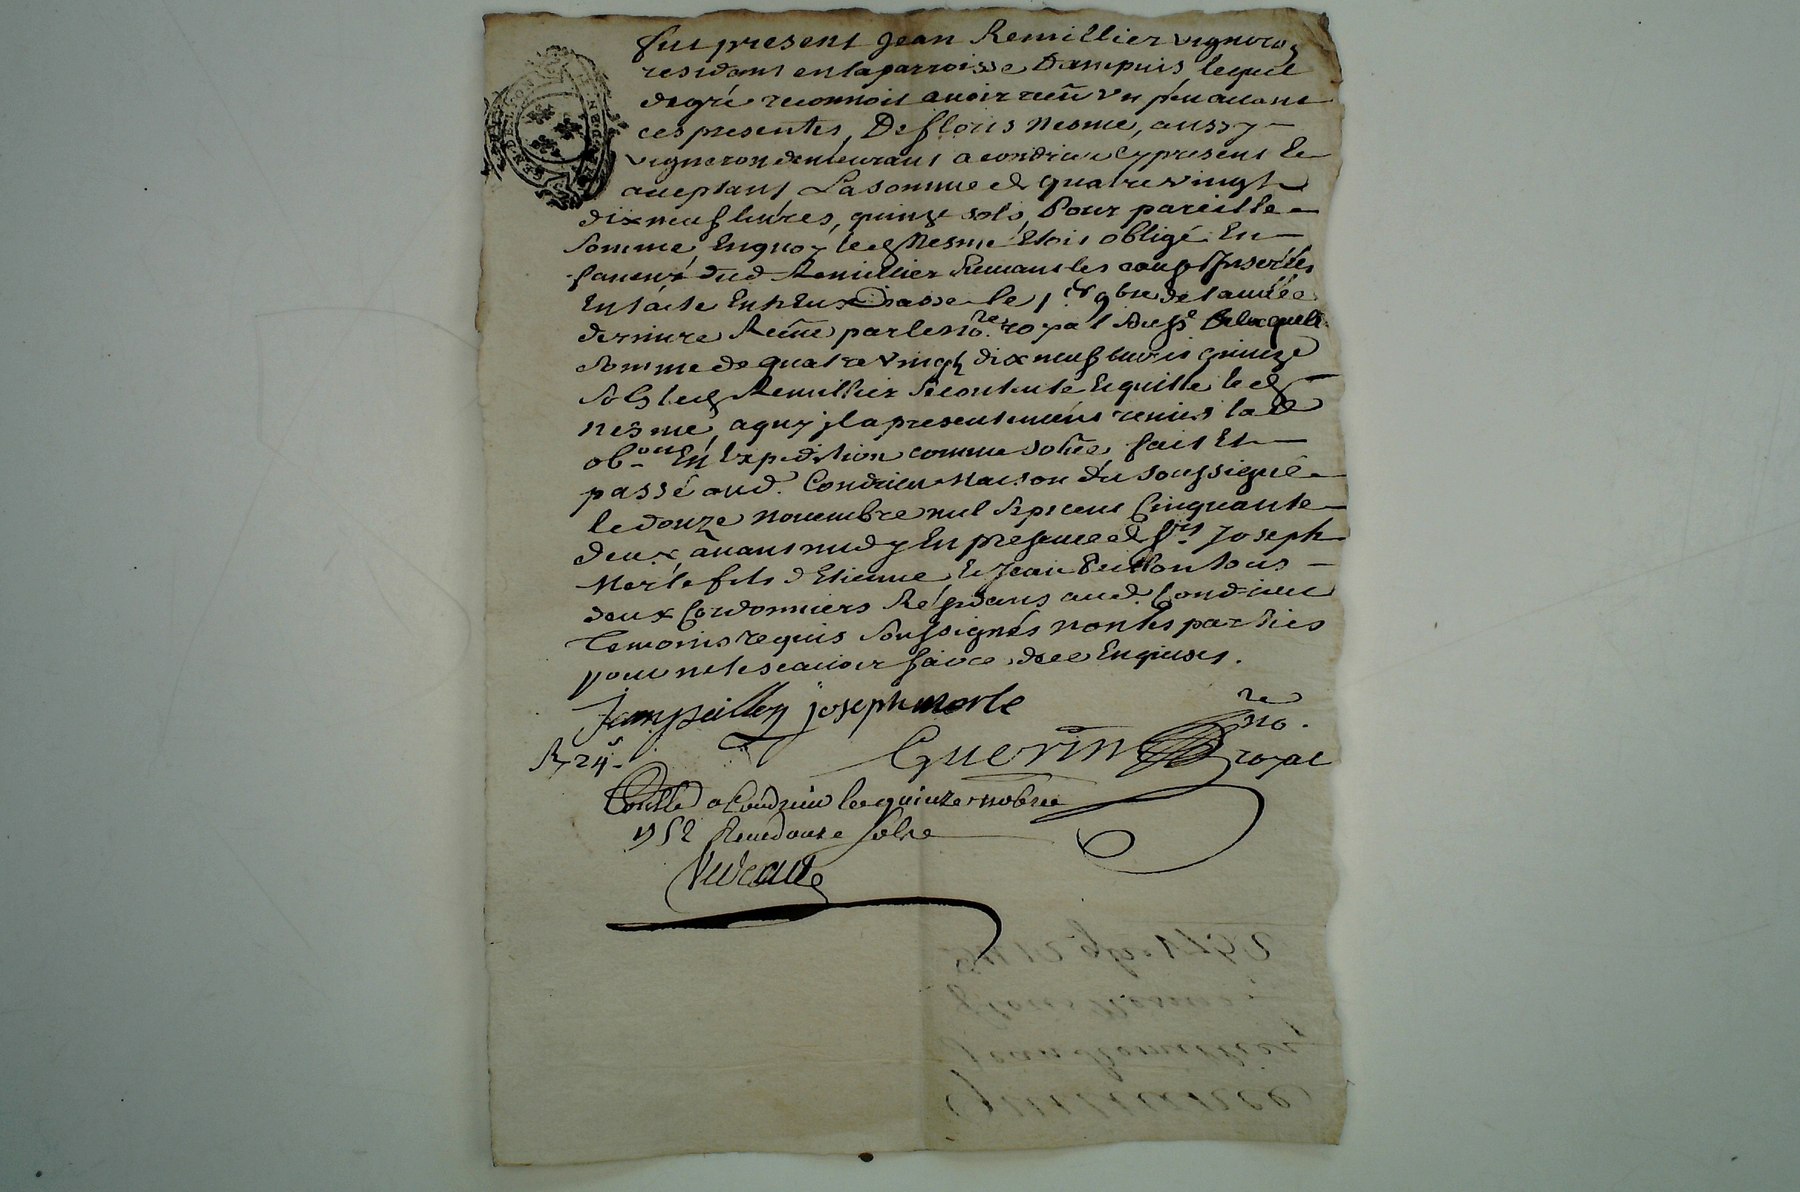 fut present Jean Remillier vigneron
residant en la parroisse Dampuis, lequel
de gré reconnoit avoir reçu un peu avant
ces presentes, De floris Nesme, aussy
vigneron demeurant a condrieu cy present Et
acceptant La somme de quatre vingt
dix neuf livres, quinze sols, Pour pareille
somme, En quoy led Nesme Etoit obligé En
faveur dud Remillier suivant les
En l'acte Entr'Eux passé le 1er 9bre de l'année
derniere Reçue par le no.re royal soussé De laquelle
somme de quatre vingt dix neuf livres quinze
sols led Remillier se contente Et quitte led
nesme, a quy jl a presentement remis lad
ob.on En Expedition comme solvée, fait Et
passé aud. Condrieu Maison du soussigné
le douze novembre mil sept cent Cinquante
deux, avant midy En presence de Srs Joseph
Merle fils d'Etienne Et Jean Peillon tous
deux Cordonniers Residans aud. Condrieu
Temoins requis soussignés non les parties
pour ne le scavoir faire de ce Enquises.
Jean peillon joseph merle
Guerin no.re royal
R 24s.
Conllé a Condrieu le quinze nobre
1752 Reçu douze sols
du 12 9bre 1752
floris Nesme
Jean Remillier
Quittance